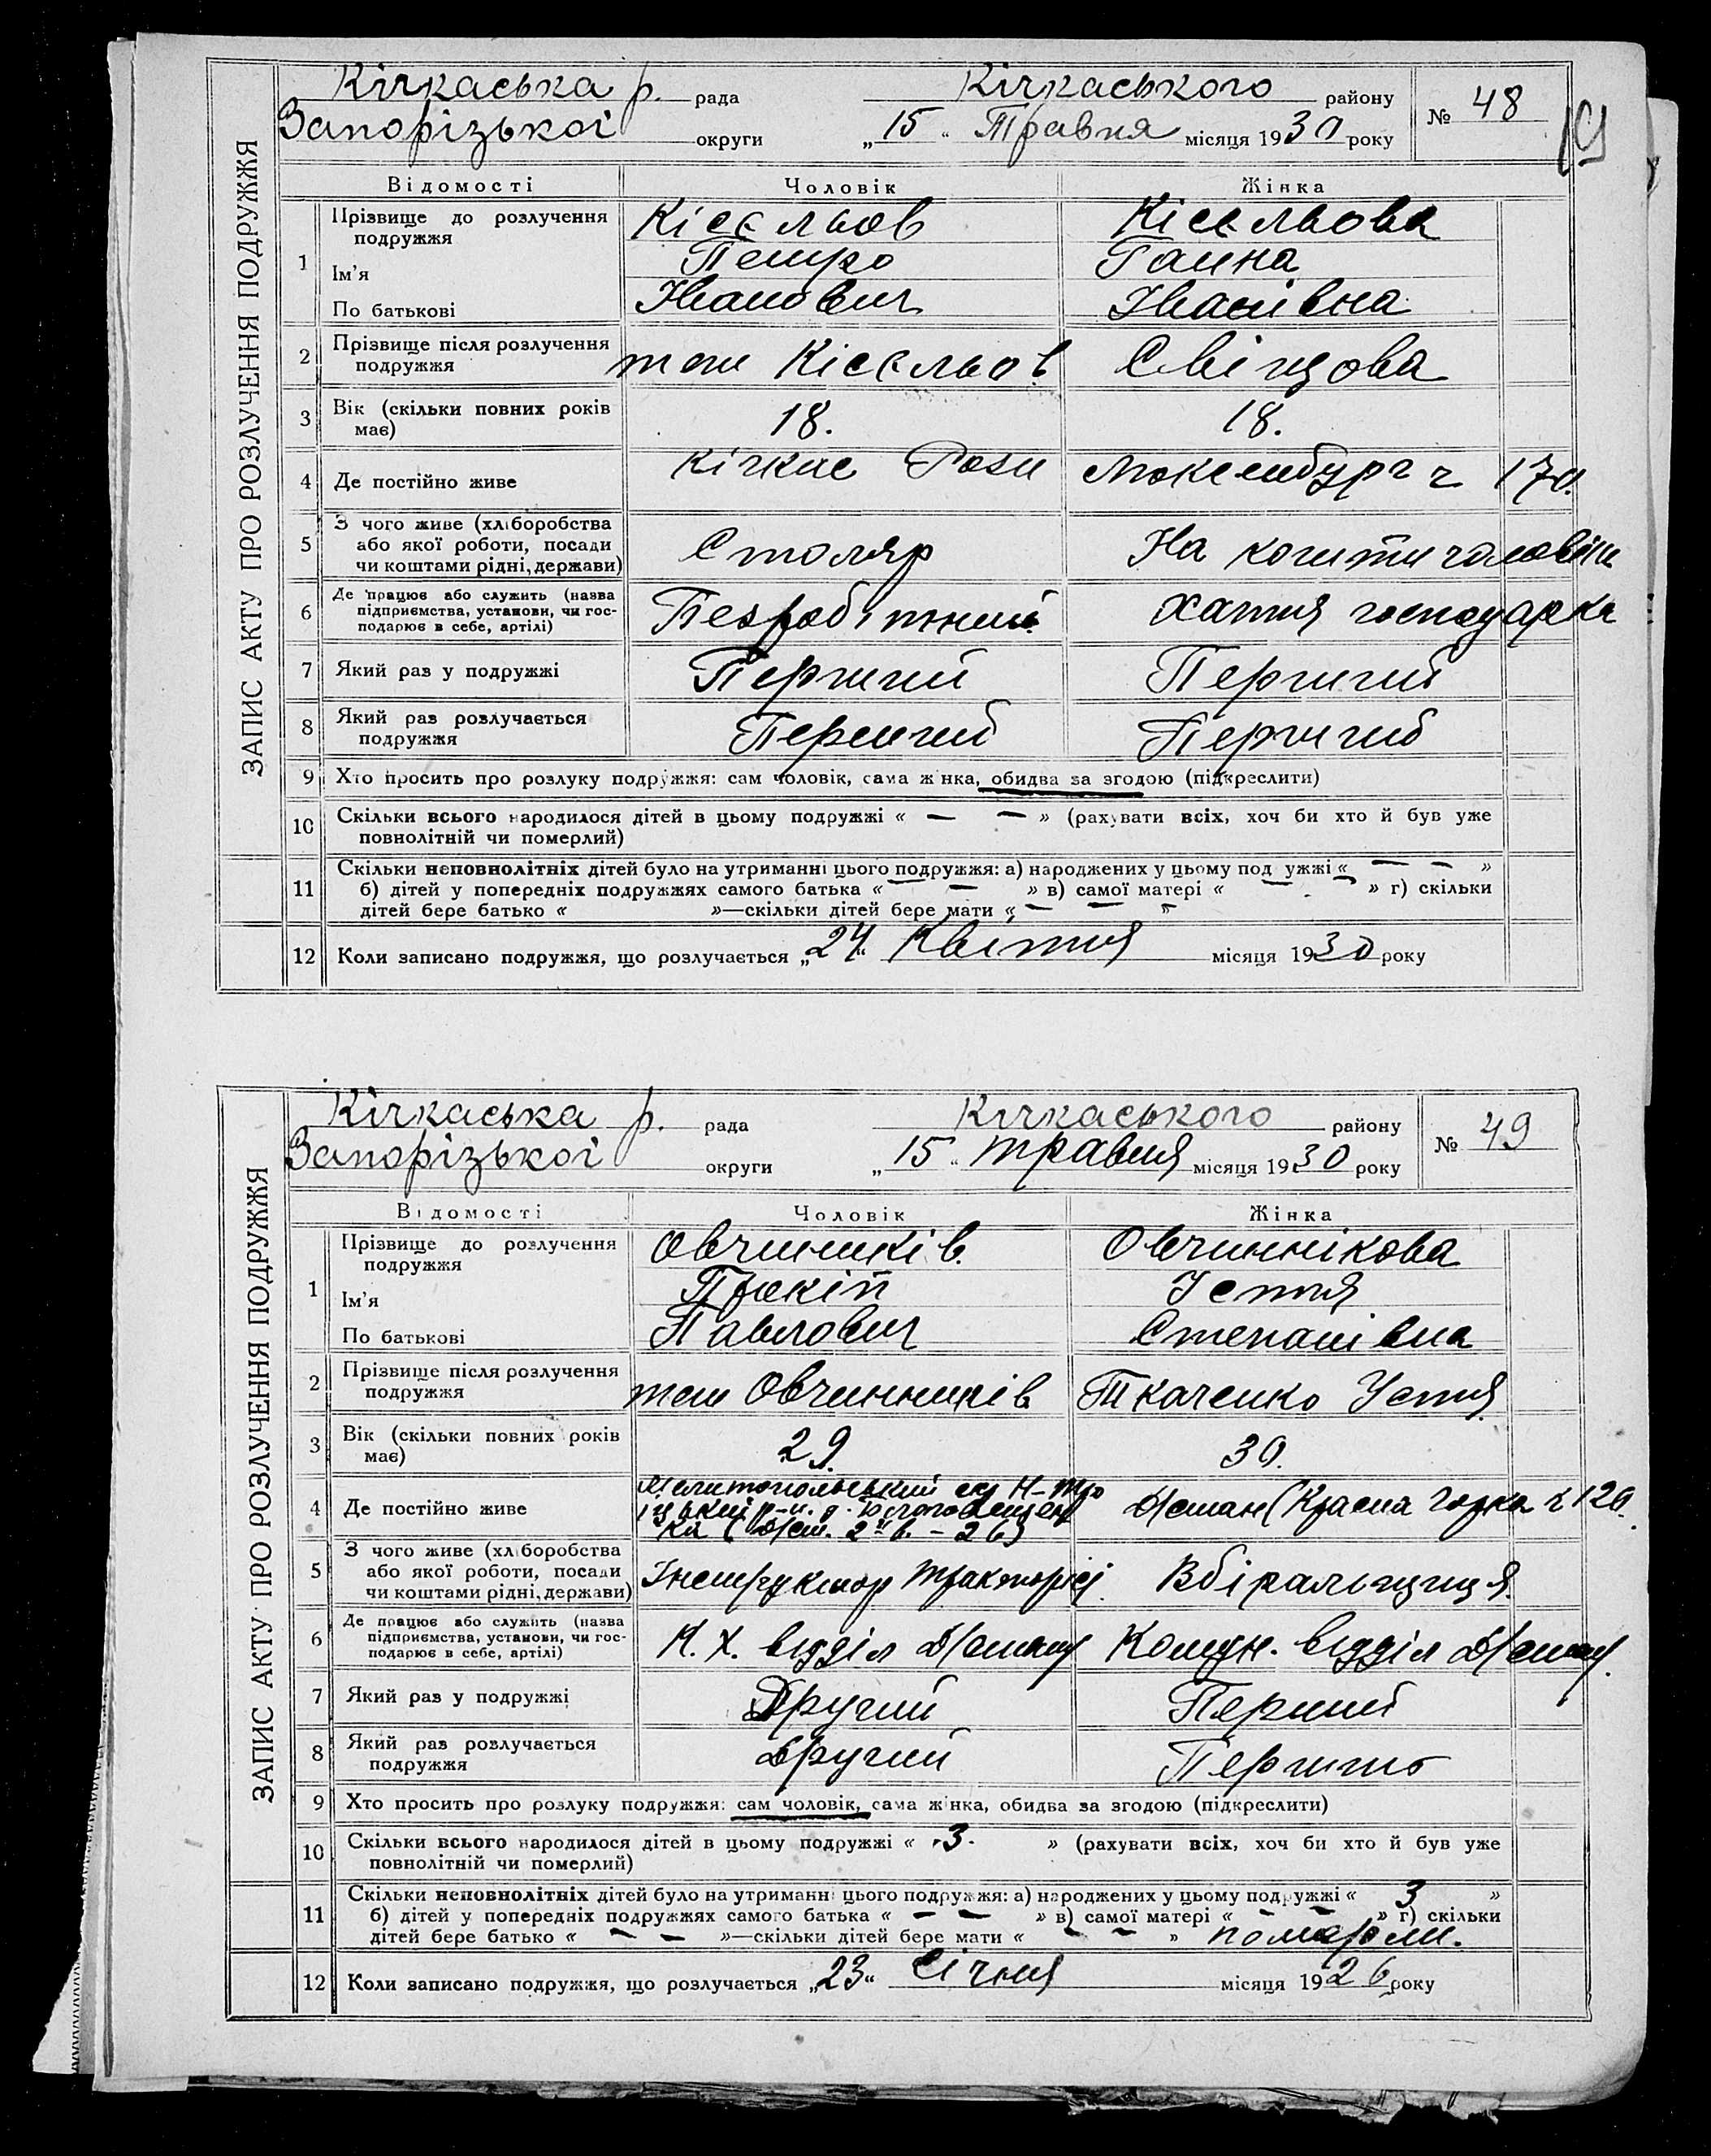 ЗАПИС АКТУ ПРО РОЗЛУЧЕННЯ ПОДРУЖЖЯ
Кічкаська р. рада Кічкаського району № 48
Запорізької округи „15" Травня місяця 1930 року
19
Відомості Чоловік Жінка
1 Прізвище до розлучення подружжя Кісєльов Кісєльова
Ім'я Петро Ганна
По батькові Іванович Іванівна
2 Прізвище після розлучення подружжя той Кісєльов Свіщова
3 Вік (скільки повних років має) 18. 18.
4 Де постійно живе Кічкас Рози Люксембург ч 170.
5 З чого живе (хліборобства або якої роботи, посади чи коштами рідні, держави) Столяр На кошти чоловіка
6 Де працює або служить (назва підприємства, установи, чи господарює в себе, артілі) Безробітний Хатня господарка
7 Який раз у подружжі Перший Перший
8 Який раз розлучається подружжя Перший Перший
9 Хто просить про розлуку подружжя: сам чоловік, сама жінка, обидва за згодою (підкреслити)
10 Скільки всього народилося дітей в цьому подружжі « — — » (рахувати всіх, хоч би хто й був уже
повнолітній чи померлий)
11 Скільки неповнолітніх дітей було на утриманні цього подружжя: а) народжених у цьому подружжі « — — »
б) дітей у попередніх подружжях самого батька « — — » в) самої матері « — » г) скільки
дітей бере батько « »—скільки дітей бере мати « — — »
12 Коли записано подружжя, що розлучається „24" Квітня місяця 1930 року
ЗАПИС АКТУ ПРО РОЗЛУЧЕННЯ ПОДРУЖЖЯ
Кічкаська р. рада Кічкаського району № 49
Запорізької округи „15" травня місяця 1930 року
Відомості Чоловік Жінка
1 Прізвище до розлучення подружжя Овчинників. Овчиннікова
Ім'я Прокіп Устя
По батькові Павлович Степанівна
2 Прізвище після розлучення подружжя той Овчинників Ткаченко Устя.
3 Вік (скільки повних років має) 29. 30.
4 Де постійно живе Мелитопольський Дстан (Красна Горка ч 120.
5 З чого живе (хліборобства або якої роботи, посади чи коштами рідні, держави) Інструктор Вбіральщиця.
6 Де працює або служить (назва підприємства, установи, чи господарює в себе, артілі) К. Х. відділ Дстану Комун. відділ Дстану.
7 Який раз у подружжі Другий Перший
8 Який раз розлучається подружжя Другий Перший
9 Хто просить про розлуку подружжя: сам чоловік, сама жінка, обидва за згодою (підкреслити)
10 Скільки всього народилося дітей в цьому подружжі « 3. » (рахувати всіх, хоч би хто й був уже
повнолітній чи померлий)
11 Скільки неповнолітніх дітей було на утриманні цього подружжя: а) народжених у цьому подружжі « 3 »
б) дітей у попередніх подружжях самого батька « — — » в) самої матері « — — » г) скільки
дітей бере батько « — — »—скільки дітей бере мати « — — » померли.
12 Коли записано подружжя, що розлучається „23" Січня місяця 1926 року